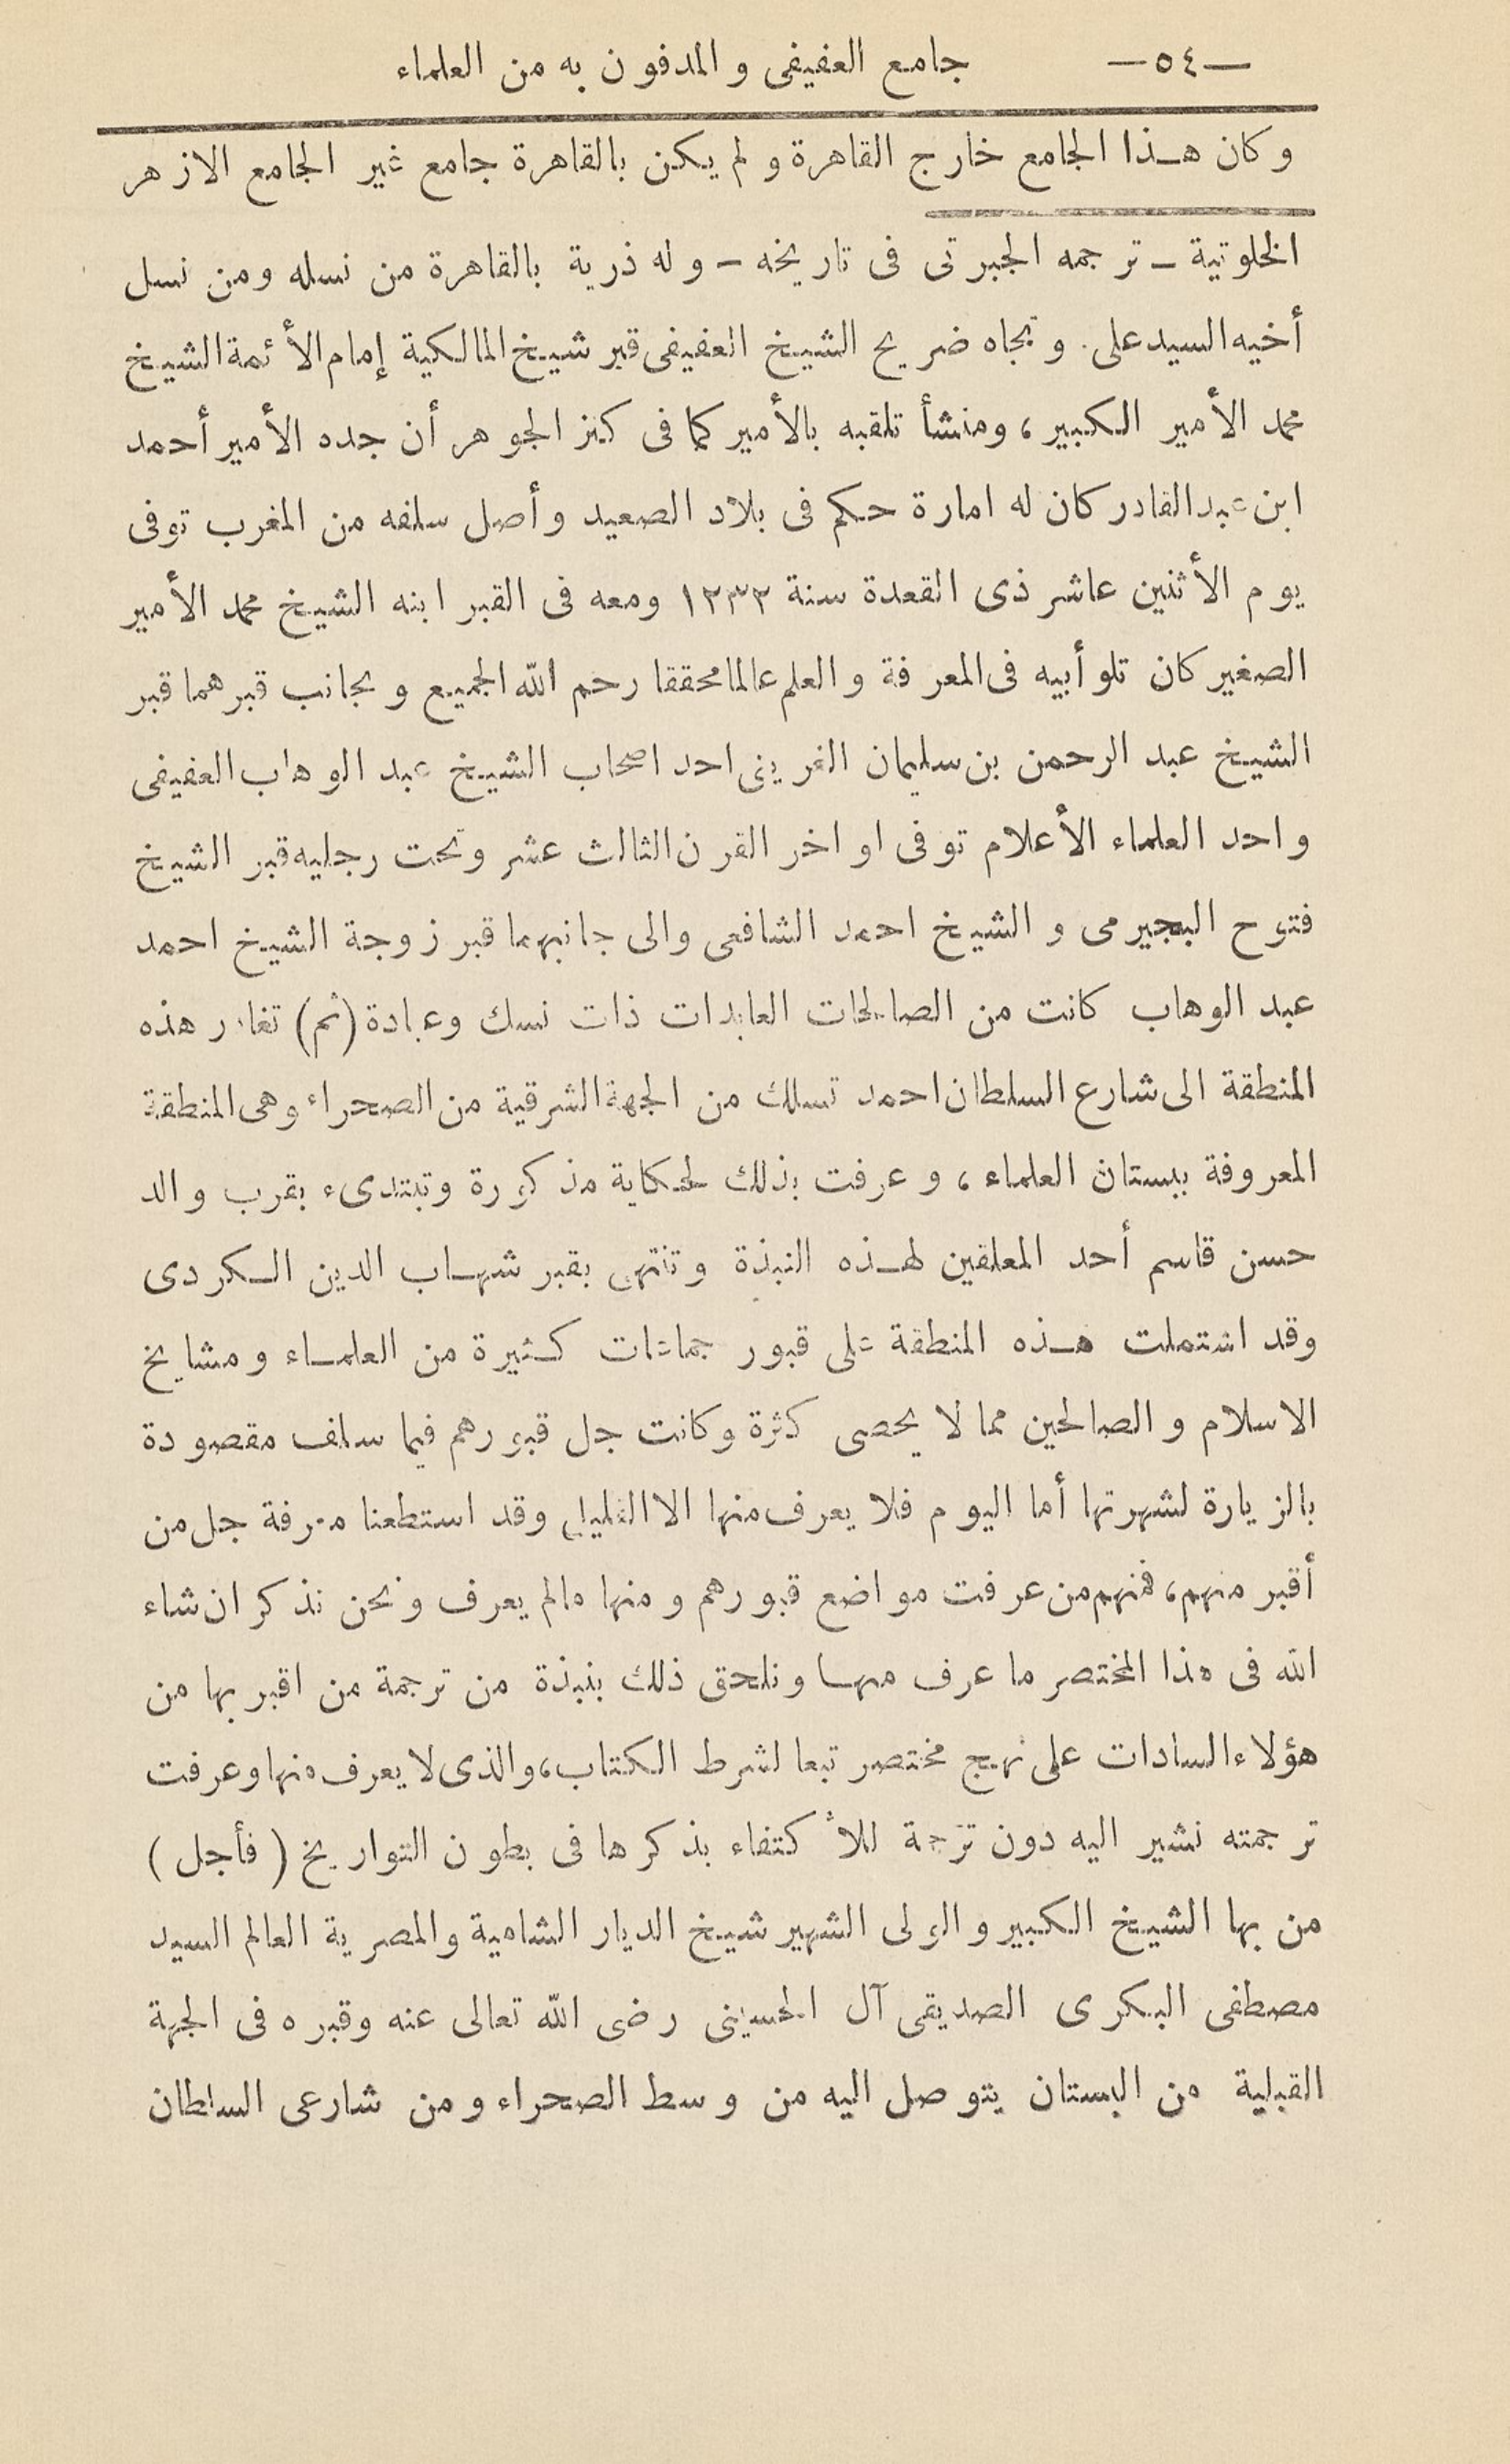 —٥٤— جامع العفيفى والمدفون به من العلماء
وكان هذا الجامع خارج القاهرة ولم يكن بالقاهرة جامع غير الجامع الازهر
الخلوتية – ترجمه الجبرتى فى تاريخه – وله ذرية بالقاهرة من نسله ومن نسل
أخيه السيد على. وتجاه ضريح الشيخ العفيفى قبر شيخ المالكية إمام الأئمة الشيخ
محمد الأمير الكبير، ومنشأ تلقبه بالأمير كما فى كنز الجوهر أن جده الأمير أحمد
ابن عبد القادر كان له امارة حكم فى بلاد الصعيد وأصل سلفه من المغرب توفى
يوم الأثنين عاشر ذى القعدة سنة ١٢٣٢ ومعه فى القبر ابنه الشيخ محمد الأمير
الصغير كان تلو أبيه فى المعرفة والعلم عالما محققا رحم الله الجميع وبجانب قبرهما قبر
الشيخ عبد الرحمن بن سليمان الغرينى احد اصحاب الشيخ عبد الوهاب العفيفى
واحد العلماء الأعلام توفى اواخر القرن الثالث عشر وتحت رجليه قبر الشيخ
فتوح البجيرمى والشيخ احمد الشافعى والى جانبهما قبر زوجة الشيخ احمد
عبد الوهاب كانت من الصالحات العابدات ذات نسك وعبادة (ثم) تغادر هذه
المنطقة الى شارع السلطان احمد تسلك من الجهة الشرقية من الصحراء وهى المنطقة
المعروفة ببستان العلماء، وعرفت بذلك لحكاية مذكورة وتبتدىء بقرب والد
حسن قاسم أحد المعلقين لهذه النبذة وتنتهى بقبر شهاب الدين الكردى
وقد اشتملت هذه المنطقة على قبور جماعات كثيرة من العلماء ومشايخ
الاسلام والصالحين مما لا يحصى كثرة وكانت جل قبورهم فيما سلف مقصودة
بالزيارة لشهرتها أما اليوم فلا يعرف منها الا القليل وقد استطعنا معرفة جل من
أقبر منهم، فمنهم من عرفت مواضع قبورهم ومنها مالم يعرف ونحن نذكر ان شاء
الله فى هذا المختصر ما عرف منها ونلحق ذلك بنبذة من ترجمة من اقبر بها من
هؤلاء السادات على نهج مختصر تبعا لشرط الكتاب، والذى لا يعرف منها وعرفت
ترجمته نشير اليه دون ترجمة للأكتفاء بذكرها فى بطون التواريخ (فأجل)
من بها الشيخ الكبير والولى الشهير شيخ الديار الشامية والمصرية العالم السيد
مصطفى البكرى الصديقى آل الحسينى رضى الله تعالى عنه وقبره فى الجهة
القبلية من البستان يتوصل اليه من وسط الصحراء ومن شارعى السلطان